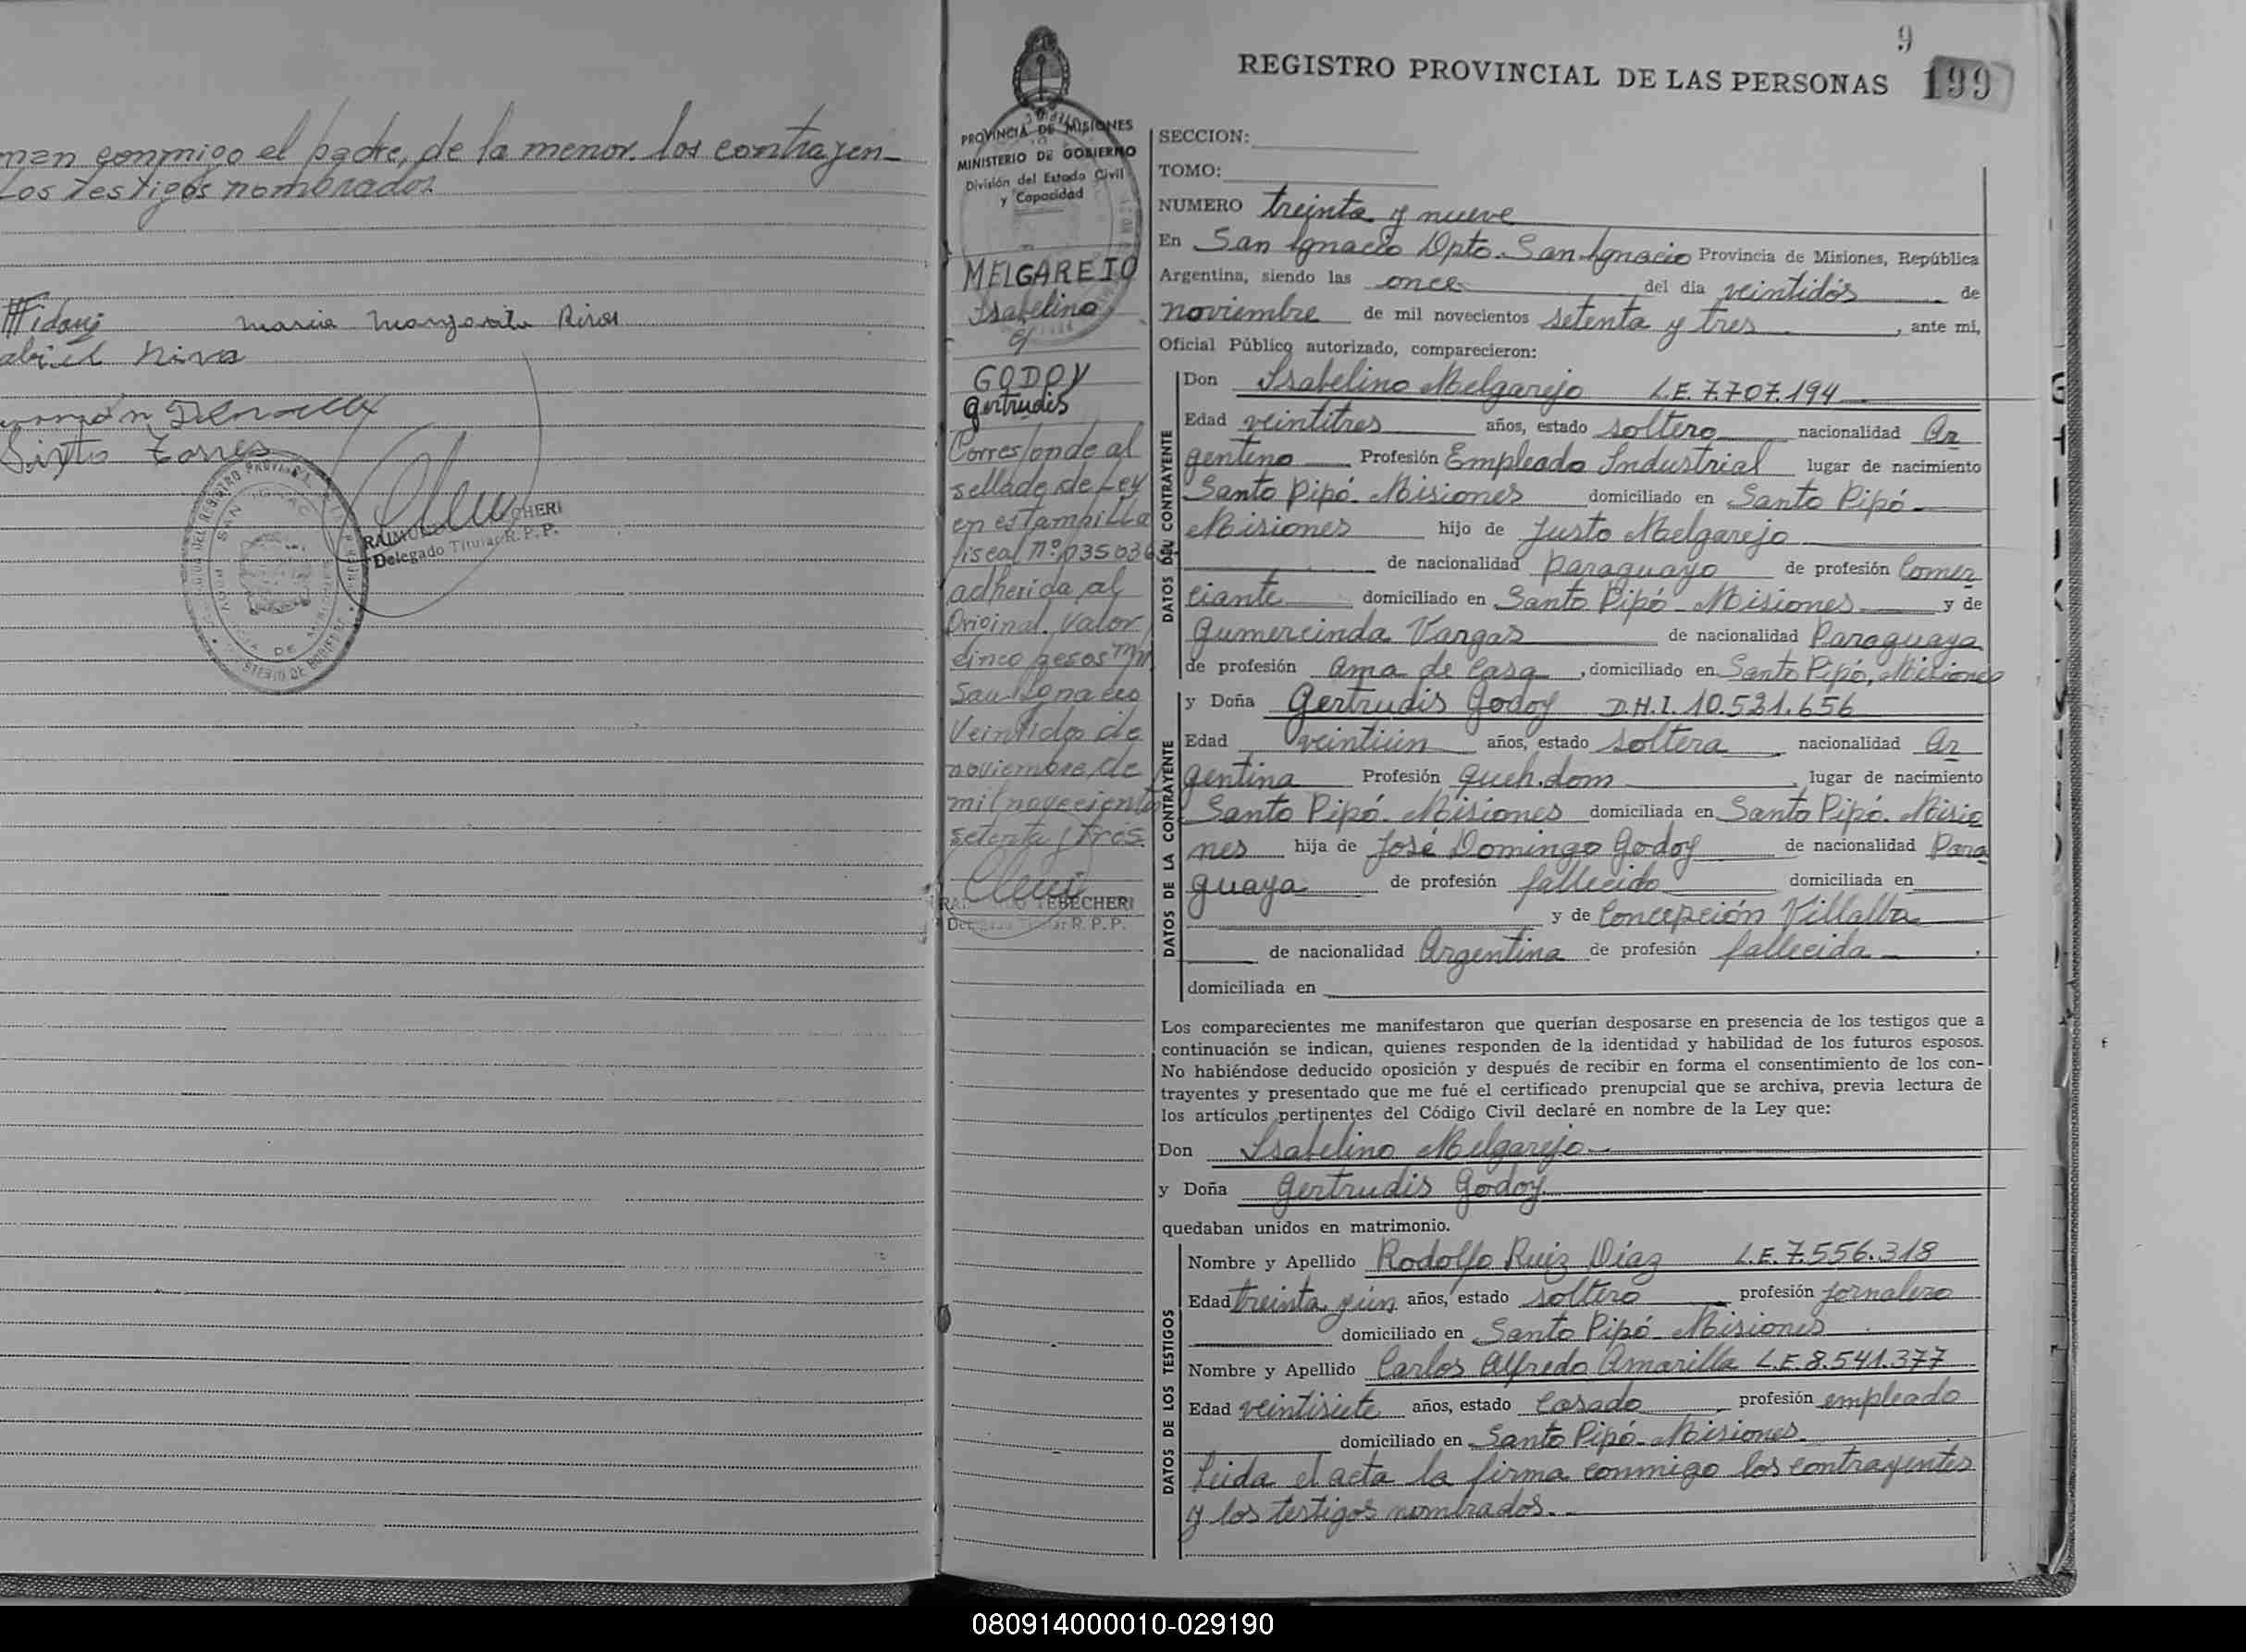 men conmigo el padre, de la menor. los contrayen-
los testigos nombrados.
maria margarita Rivas
Sixto Torres
RAIMUNDO
Delegado Titular R. P. P.
9
REGISTRO PROVINCIAL DE LAS PERSONAS 199
PROVINCIA DE MISIONES
MINISTERIO DE GOBIERNO
División del Estado Civil
y Capacidad
MELGAREJO
Isabelino
y
GODOY
Gertrudis
Corresponde al
sellado de Ley
en estampilla
fiscal nº
adherida al
Original. Valor
cinco pesos m/n
San Ignacio
Veintidos de
noviembre de
mil novecientos
setenta y tres.
TEBECHERI
R. P. P.
SECCION:
TOMO:
NUMERO treinta y nueve
En San Ignacio Dpto. San Ignacio Provincia de Misiones, República
Argentina, siendo las once del dia veintidós de
noviembre de mil novecientos setenta y tres , ante mi,
Oficial Público autorizado, comparecieron:
DATOS DEL CONTRAYENTE
Don Isabelino Melgarejo L.E. 7.707.194
Edad veintitres años, estado soltero nacionalidad Ar
gentino Profesión Empleado Industrial lugar de nacimiento
Santo Pipó - Misiones domiciliado en Santo Pipó -
Misiones hijo de Justo Melgarejo
de nacionalidad paraguayo de profesión Comer
ciante domiciliado en Santo Pipó - Misiones y de
Gumercinda Vargas de nacionalidad Paraguaya
de profesión Ama de Casa , domiciliado en Santo Pipó, Misiones
DATOS DE LA CONTRAYENTE
y Doña Gertrudis Godoy D.N.I. 10.531.656
Edad veintiún años, estado soltera nacionalidad Ar
gentina Profesión Queh. dom , lugar de nacimiento
Santo Pipó - Misiones domiciliada en Santo Pipó. Misio
nes hija de José Domingo Godoy de nacionalidad Para
guaya de profesión fallecido domiciliada en
y de Concepción Villalba
de nacionalidad Argentina de profesión fallecida .
domiciliada en
Los comparecientes me manifestaron que querían desposarse en presencia de los testigos que a
continuación se indican, quienes responden de la identidad y habilidad de los futuros esposos.
No habiéndose deducido oposición y después de recibir en forma el consentimiento de los con-
trayentes y presentado que me fué el certificado prenupcial que se archiva, previa lectura de
los artículos pertinentes del Código Civil declaré en nombre de la Ley que:
Don Isabelino Melgarejo
y Doña Gertrudis Godoy
quedaban unidos en matrimonio.
DATOS DE LOS TESTIGOS
Nombre y Apellido Rodolfo Ruiz Díaz L.E. 7.556.318
Edad treinta y un años, estado soltero profesión jornalero
domiciliado en Santo Pipó - Misiones
Nombre y Apellido Carlos Alfredo Amarilla L.E. 8.541.377
Edad veintisiete años, estado Casado profesión empleado
domiciliado en Santo Pipó - Misiones
Leida el acta la firma conmigo los contrayentes
y los testigos nombrados.-
080914000010-029190